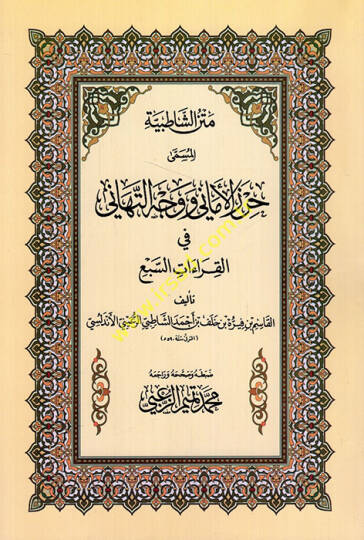 متن الشاطبية
المسمى
حرز الأماني ووجه التهاني
في
القراءات السبع
تأليف
القاسم بن فيرة بن خلف بن أحمد الشاطبي الرعيني الأندلسي
(المتوفى سنة ٥٩٠هـ)
ضبطه وصححه وراجعه
محمد تميم الزعبي